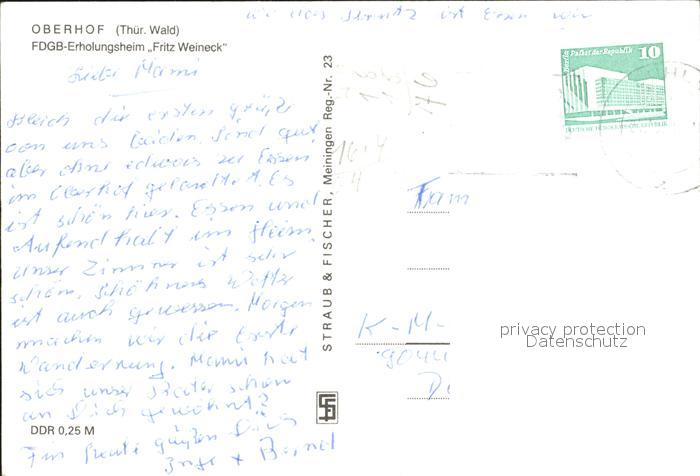 wir uns                 ist Essen wir
OBERHOF (Thür. Wald)
FDGB-Erholungsheim „Fritz Weineck"
Liebe Mami
Gleich die ersten Grüße
von uns beiden. Sind gut
aber ohne etwas zu Essen
in Oberhof gelandtet. Es
ist schön hier. Essen und
Aufendhalt im Heim.
Unser Zimmer ist sehr
schön. Schöhnes Wetter
ist auch gewesen. Morgen
machen wir die Erste
Wanderrung. Mami hat
sich unser Peter schon
an Dich gewöhnt?
Für heute grüßen Dich
Inge + Bernd
DDR 0,25 M
STRAUBE & FISCHER, Meiningen Reg.-Nr. 23
Berlin Palast der Republik 10
DEUTSCHE DEMOKRATISCHE REPUBLIK
Fam
K-M-
9044
privacy protection
Datenschutz